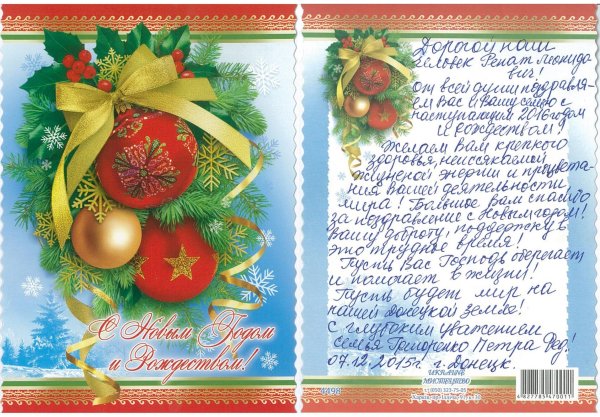 С Новым Годом
и Рождеством!
Дорогой наш
человек Ренат Леонидо
вич!
От всей души поздравля-
ем Вас и Вашу семью с
наступающим 2016 годом
и рождеством!
Желаем Вам крепкого
здоровья, неиссякаемой
жизненой энергии и процвета-
ния вашей деятельности
мира! Большое Вам спасибо
за поздравление с Новым годом!
Вашу доброту, поддержку в
это трудное время!
Пусть Вас Господь оберегает
и помогает в жизни!
Пусть будет мир на
нашей донецкой земле!
с глубоким уважением
семья Петра Фед!
07.12.2015г. г. Донецк.
4498
УКРАЇНА
МИСТЕЦТВО
4 827785 470011